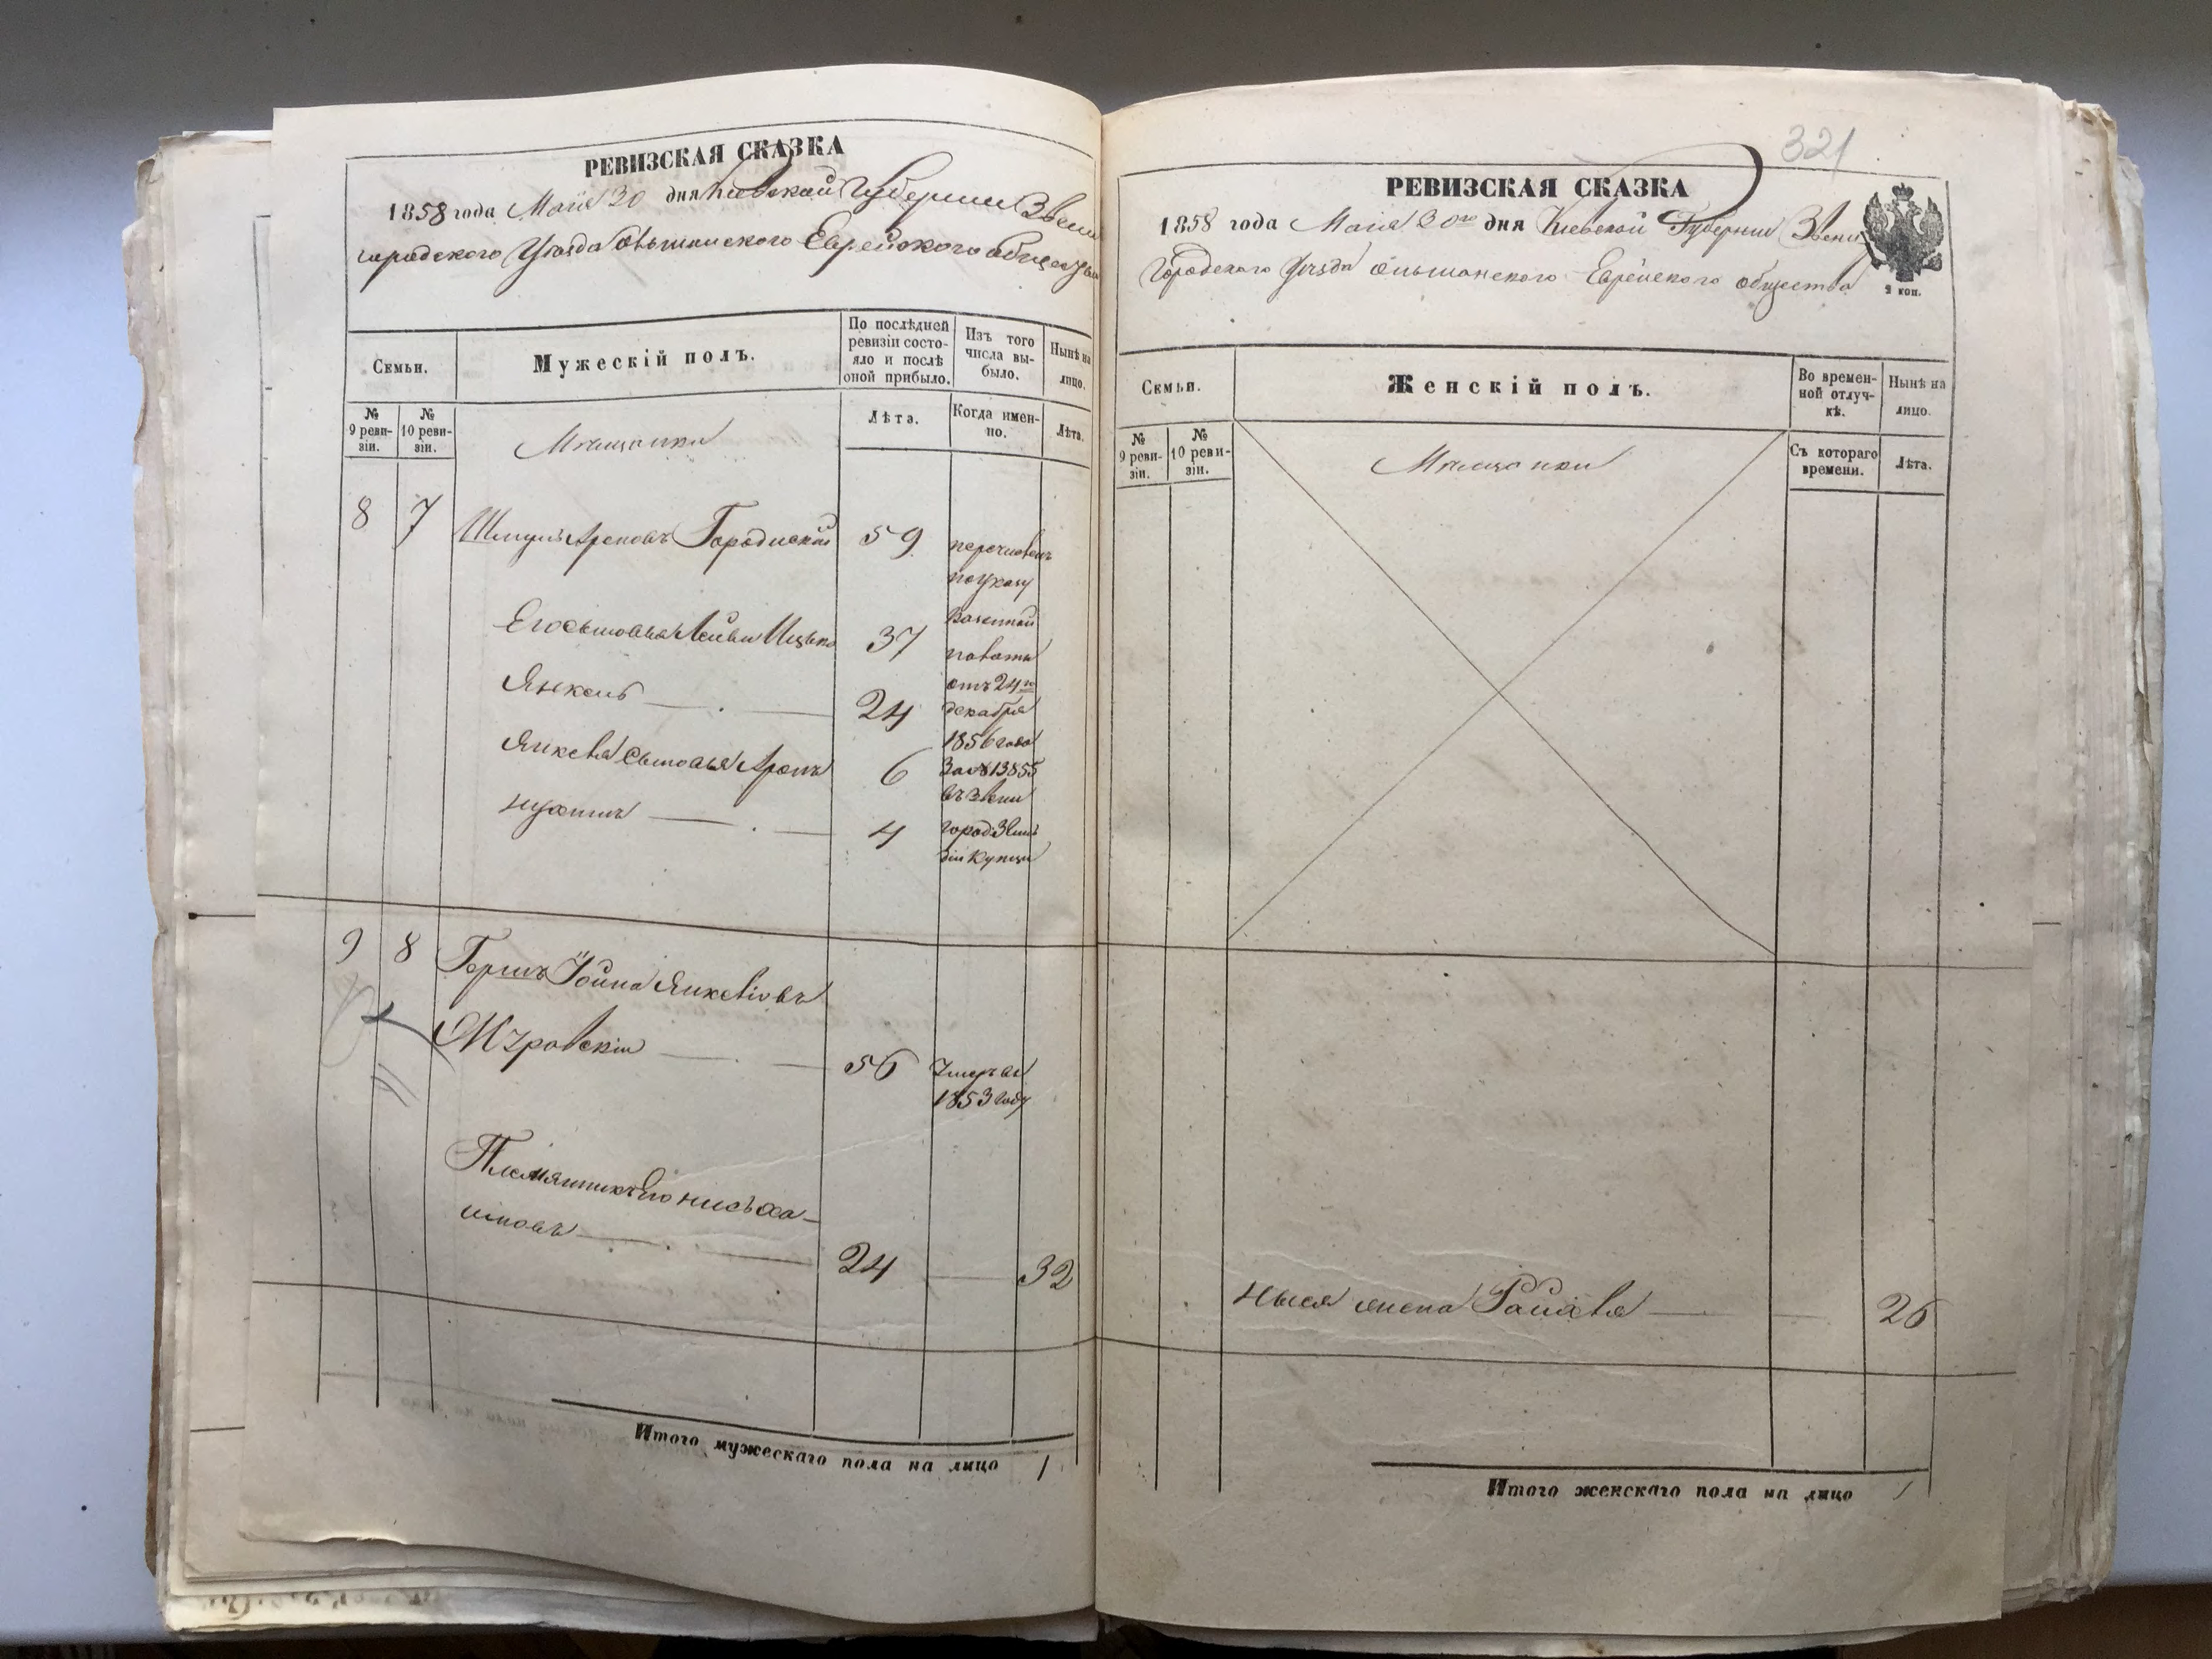 РЕВИЗСКАЯ СКАЗКА
1858 года Маія 30 дня Кіевской Губерніи Звени
городского Уѣзда Ольшанского Еврейского общества
Семьи.
Мужескій полъ.
По послѣдней ревизіи состояло и послѣ оной прибыло.
Изъ того числа выбыло.
Нынѣ на лицо.
№ 9 ревизіи.
№ 10 ревизіи.
Мѣщане
Лѣта.
Когда именно.
Лѣта.
8 7 Шмуль Ароновъ Городиской 59 перечисленъ
по указу
Казенной
Его сыновья Лейви Ицько 37 палаты
Янкель 24 отъ 24го
декабря
1856 года
Янкеля сыновья Аронъ 6 за №13855
въ Звени
Нухимъ 4 город 3 гиль
діи купцы
9 8 Гершъ Іойна Янкеліовъ
Мгровскій 56 Умеръ въ
1853 году
Племянникъ его Нисъ Ха-
имовъ 24 32
Итого мужескаго пола на лицо 1
321
РЕВИЗСКАЯ СКАЗКА
1858 года Маія 30го дня Кіевской Губерніи Звени
Городского Уѣзда Ольшанского Еврейского общества
2 коп.
Семьи.
Женскій полъ.
Во временной отлучкѣ.
Нынѣ на лицо.
№ 9 ревизіи.
№ 10 ревизіи.
Мѣщанки
Съ котораго времени.
Лѣта.
Ныся жена Райхля 26
Итого женскаго пола на лицо 1